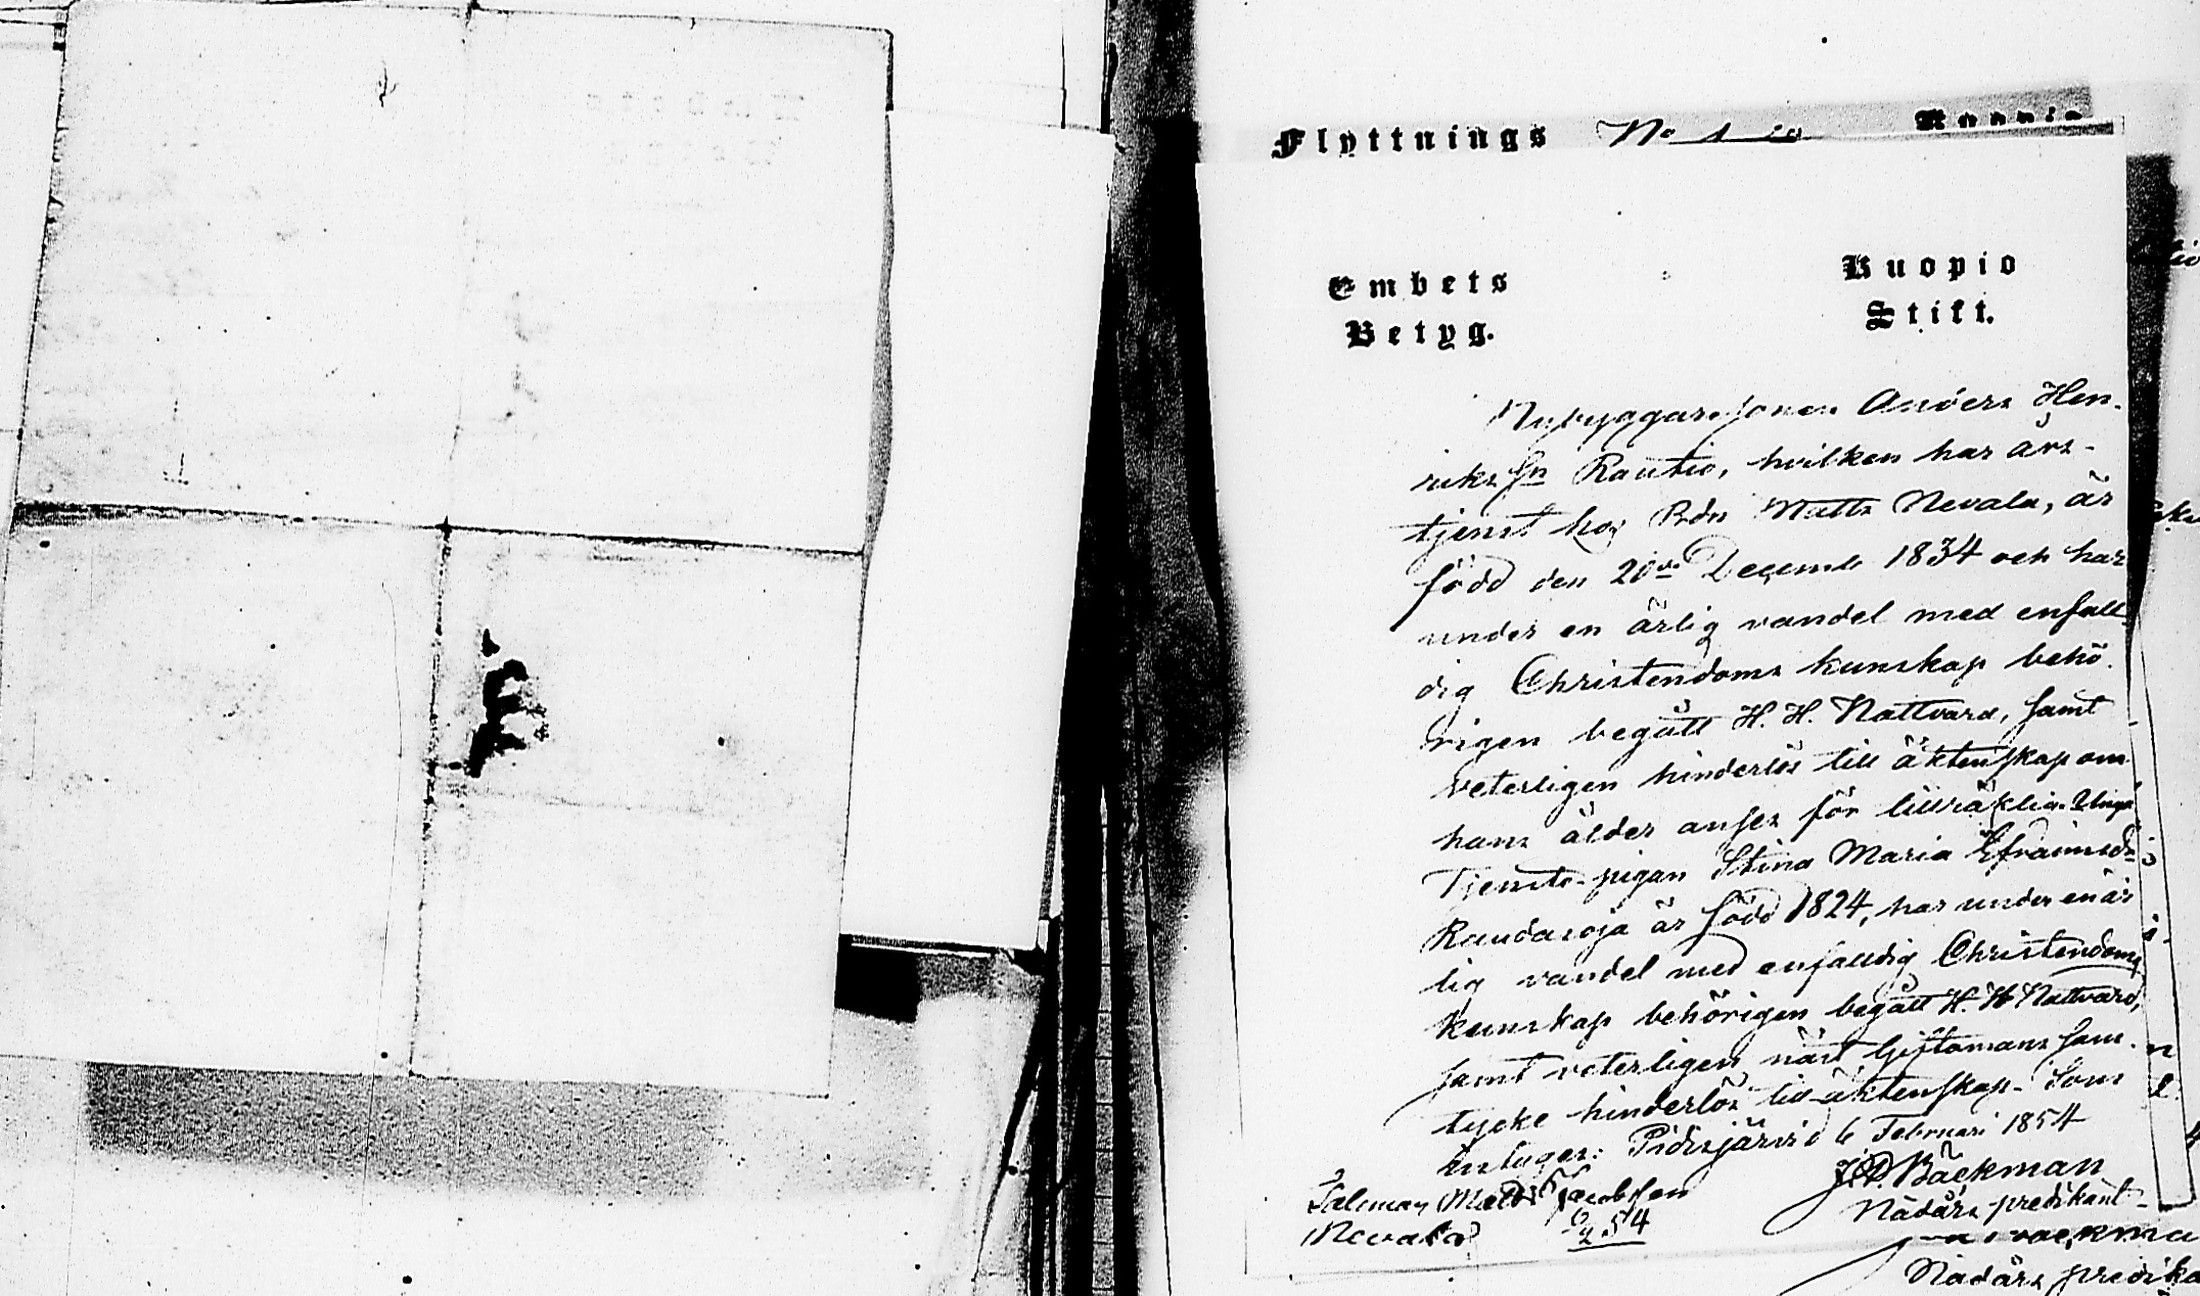 Flyttnings No 1
Embets
Betyg.
Kuopio
Stift.
Nybyggaresonen Anders Hen-
riks Sn Rautio, hvilken har års-
tjenst hos Bdn Matts Nevala, är
född den 20de Decemb 1834 och har
under en ärlig vandel med enfall-
dig Christendoms kunskap behö-
rigen begått H. H. Nattvard, samt
veterligen hinderlös till äktenskap om
hans ålder anses för tillräklig.
Tjenste-pigan Stina Maria Efraimsdr
Raudasoja är född 1824, har under en är-
lig vandel med enfaldig Christendoms
kunskap behörigen begått H. H. Nattvard,
samt veterligen näst Giftomans sam-
tycke hinderlös till äktenskap. Som
intygar: Pidisjärvi d 6 Februari 1854
J. Bäckman
Nådårs predikant
Taleman Matts Jacobsson
Nevala
6/2 54
Nådårs predika